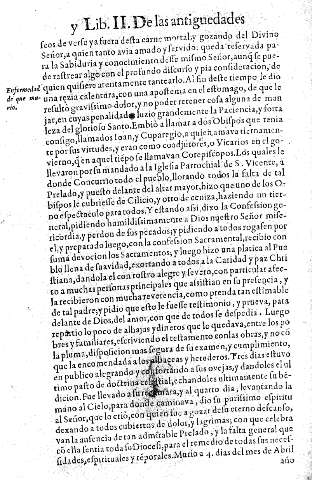 y Lib. II. De las antiguedades
seos de verse ya fuera desta carne mortal, y gozando del Divino
Señor, a quien tanto avia amado y servido: queda reservada pa-
ra la Sabiduria y conocimiento desse mismo Señor, aunq̃ se pue-
de rastrear algo con el profundo discurso y pia consideracion, de
quien quisiere atentamente tantearlo. Al fin deste tiempo le dio
Enfermedad
de que mu-
rio.
una rezia calentura, con una apostema en el estomago, de que le
resultó gravissimo dolor, y no poder retener cosa alguna de man
jar, en cuyas penalidades luzio grandemente la Paciencia, y forta
leza del glorioso Santo. Embiò a llamar a dos Obispos que tenia
consigo, llamados Ioan, y Cuparegio, a quien, amava tiernamen-
te por sus virtudes, y eran como coadjutores, o Vicarios en el go-
vierno, q̃ en aquel tiẽpo se llamavan Corepiscopos. Los quales le
llevaron por su mandado a la Iglesia Parrochial de S. Vicente, a
donde Concurrio todo el pueblo, llorando todos la falta de tal
Prelado, y puesto delante del altar mayor, hizo que uno de los O-
bispos le cubriesse de Cilicio, y otro de ceniza, haziendo un tier-
no espectaculo para todos. Y estando assi, dixo la Confession ge-
neral, pidiendo humildissimamente a Dios nuestro Señor mise-
ricordia y perdon de sus pecados: y pidiendo a todos rogasen por
el, y preparado luego, con la confession Sacramental, recibio con
suma devocion los Sacramentos, y luego hizo una platica al Pue
blo llena de suavidad, exortando a todos a la Caridad y paz Chri
stiana, dandola el con rostro alegre y severo, con particular afec-
to a muchas personas principales que asistian en su presencia, y
la recibieron con mucha reverencia, como prenda tan estimable
de tal padre, y pidio que esto le fuesse testimonio, y prueva, para
delante de Dios, del amor, con que de todos se despedia. Luego
repartio lo poco de alhajas y dineros que le quedava, entre los po
bres y familiares, escriviendo el testamento con las obras, y no cõ
la pluma, disposicion mas segura de su examen, y cumplimiento,
que la encomendada a los albaceas y herederos. Tres dias estuvo
en publico alegrando y confortando a sus ovejas, y dandoles el ul
timo pasto de doctrina celestial, echandoles ultimamente su bẽ-
dicion. Fue llevado a su camara, y al quarto dia, levantando la
mano al Cielo, para donde caminava, dio su purissimo espiritu
al Señor, que lo criò, con quien fue a gozar de su eterno descanso,
dexando a todos cubiertos de dolor, y lagrimas; con que celebra
van la ausencia de tan admirable Prelado, y la falta general que
cõ ella sentia toda su Diocesi, para el remedio de todas sus neces-
sidades, espirituales y tẽporales. Murio a 4. dias del mes de Abril
año